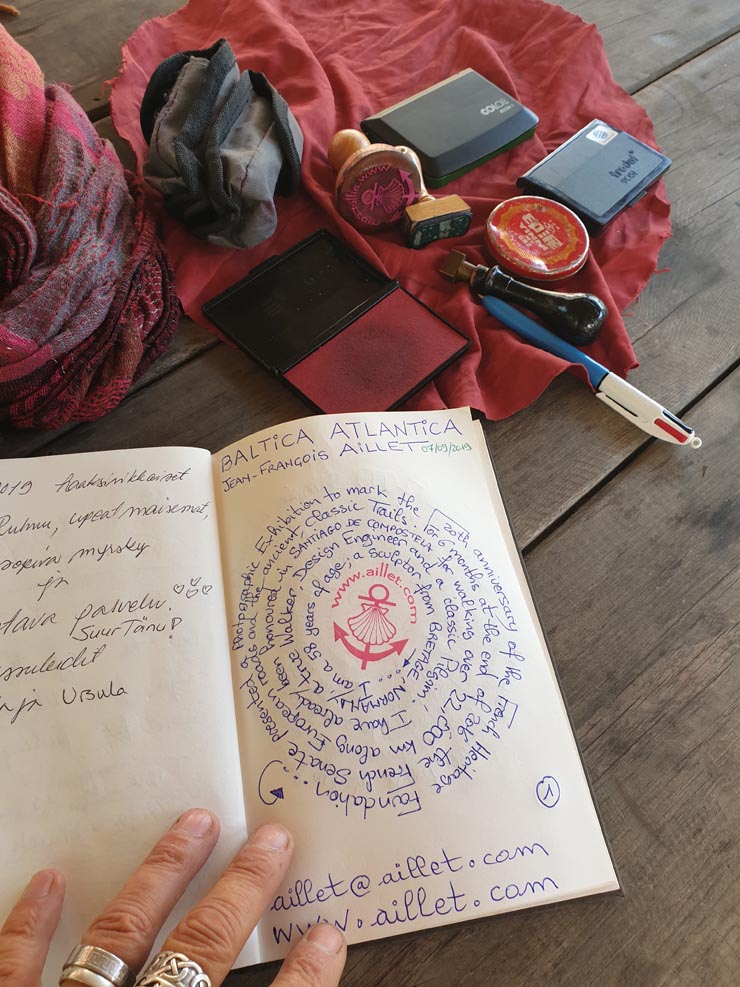 2019
Ruhnu, upeat maisemat,
myrsky
ja
palvelu.
Suur Tänu!
ja Ursula
BALTICA ATLANTICA
JEAN-FRANÇOIS AILLET 07/09/2019
www.aillet.com
... I am a 58 years of age, a sculptor from BRETAGNE
a true Walker, Design Engineer and a classic Pilgrim.
I have already been honoured in SANTIAGO DE COMPOSTELA for walking over 22 000 km along
European roads and the ancient classic Trails. For 6 months at the end of 2018 the French Senate presented
a Photographic Exhibition to mark the 20th anniversary of the French Heritage Foundation...
1
aillet@aillet.com
www.aillet.com
COLOP